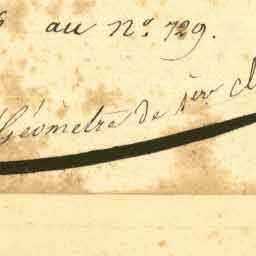 au N.º 729.
Géomètre de 1ère cl